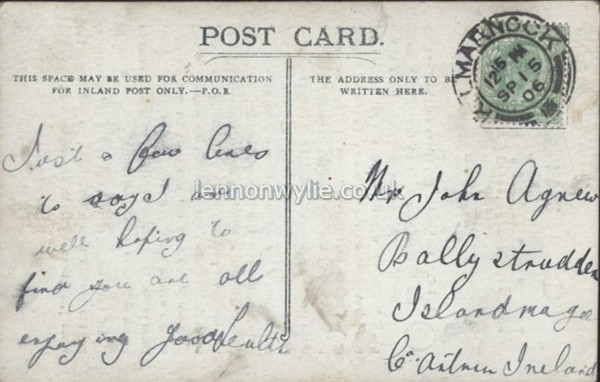 POST CARD.
THIS SPACE MAY BE USED FOR COMMUNICATION
FOR INLAND POST ONLY.—P.O.R.
THE ADDRESS ONLY TO BE
WRITTEN HERE.
KILMARNOCK
12 15 PM
SP 15
06
Just a few lines
to say I am
well hoping to
find you are all
enjoying good health
Mr John Agnew
Ballystrudden
Islandmagee
Co Antrim Ireland
lennonwylie.co.uk